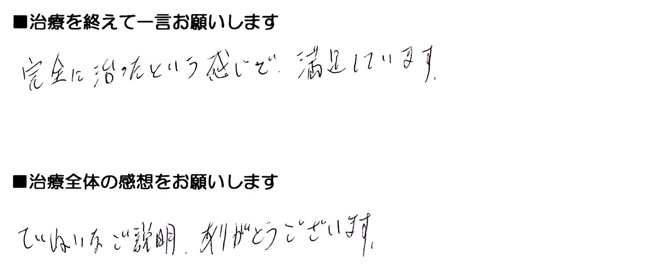 ■治療を終えて一言お願いします
完全に治ったという感じで、満足しています。
■治療全体の感想をお願いします
ていねいなご説明、ありがとうございます。